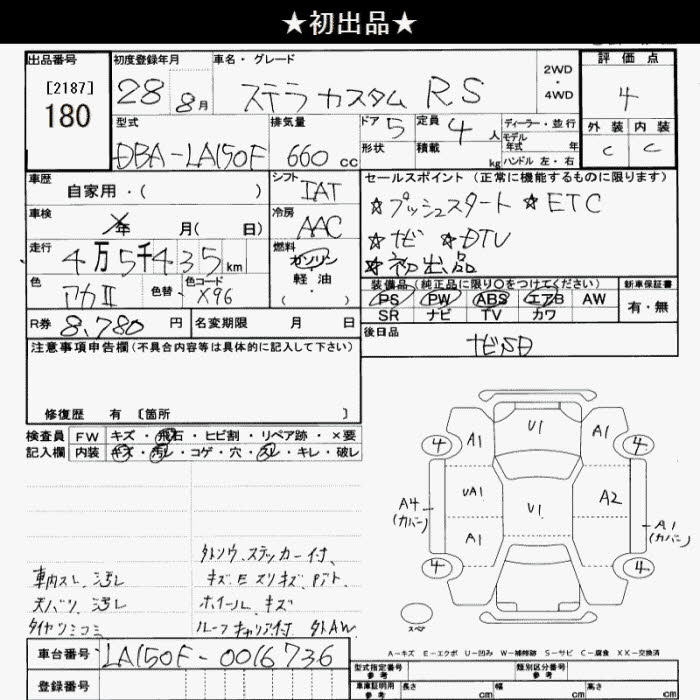 ★初出品★
出品番号
[2187]
180
初度登録年月
28 8月
車名・グレード
ステラカスタム RS
2WD
・
4WD
評価点
4
外装 内装
C C
型式
DBA-LA150F
排気量
660 cc
ドア 5
形状
定員 4 人
積載 kg
ディーラー・並行
モデル
年式 年
ハンドル 左・右
車歴
自家用・( )
シフト
IAT
セールスポイント(正常に機能するものに限ります)
☆プッシュスタート ☆ETC
☆ナビ ☆DTV
☆初出品
車検
年 月( 日)
冷房
AAC
走行
4万5千435km
燃料
ガソリン
軽油
( )
色
アカⅡ
色替
色コード
X96
装備品(純正品に限り○をつけてください)
PS PW ABS エアB AW
SR ナビ TV カワ
新車保証書
有・無
R券 8,780 円
名変期限 月 日
後日品
ナビSD
注意事項申告欄(不具合内容等は具体的に記入して下さい)
修復歴 有 〔箇所 〕
検査員
記入欄
FW キズ・飛石・ヒビ割・リペア跡・×要
内装 キズ・汚レ・コゲ・穴・スレ・キレ・破レ
外ソウ、ステッカー付、
車内スレ、汚レ キズ、E、スリキズ、Pトト
天バリ、汚レ ホイール、キズ
タイヤツミコミ ルーフキャリア付 外AW
U1
A1 A1
4 4
UA1 U1 A2
A4
(カバー)
A1
(カバー)
A1
4 4
スペア
A－キズ E－エクボ U－凹み W－補修跡 S－サビ C－腐食 XX－交換済
車台番号
LA150F-0016736
登録番号
型式指定番号
参考
類別区分番号
参考
車庫証明用
参考
長さ cm 幅 cm 高さ cm